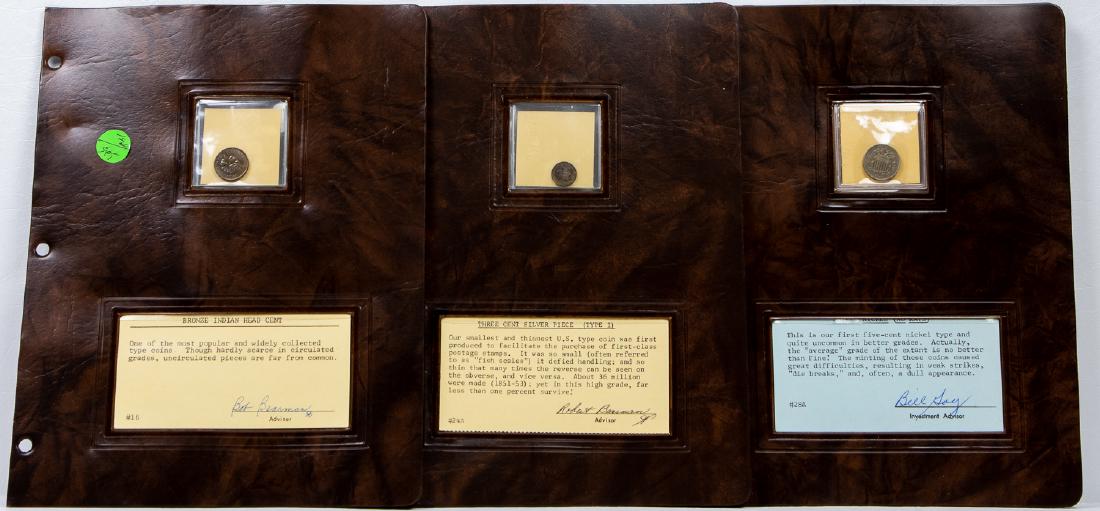 BRONZE INDIAN HEAD CENT
One of the most popular and widely collected
type coins. Though hardly scarce in circulated
grades, uncirculated pieces are far from common.
Bob Bearman
#16
Advisor
THREE CENT SILVER PIECE (TYPE I)
Our smallest and thinnest U.S. type coin was first
produced to facilitate the purchase of first-class
postage stamps. It was so small (often referred
to as "fish scales") it defied handling; and so
thin that many times the reverse can be seen on
the obverse, and vice versa. About 36 million
were made (1851-53); yet in this high grade, far
less than one percent survive!
Robert Bearman
#24A
Advisor
This is our first five-cent nickel type and
quite uncommon in better grades. Actually,
the "average" grade of the extant is no better
than Fine! The minting of these coins caused
great difficulties, resulting in weak strikes,
"die breaks," and, often, a dull appearance.
Bill Gay
#28A
Investment Advisor